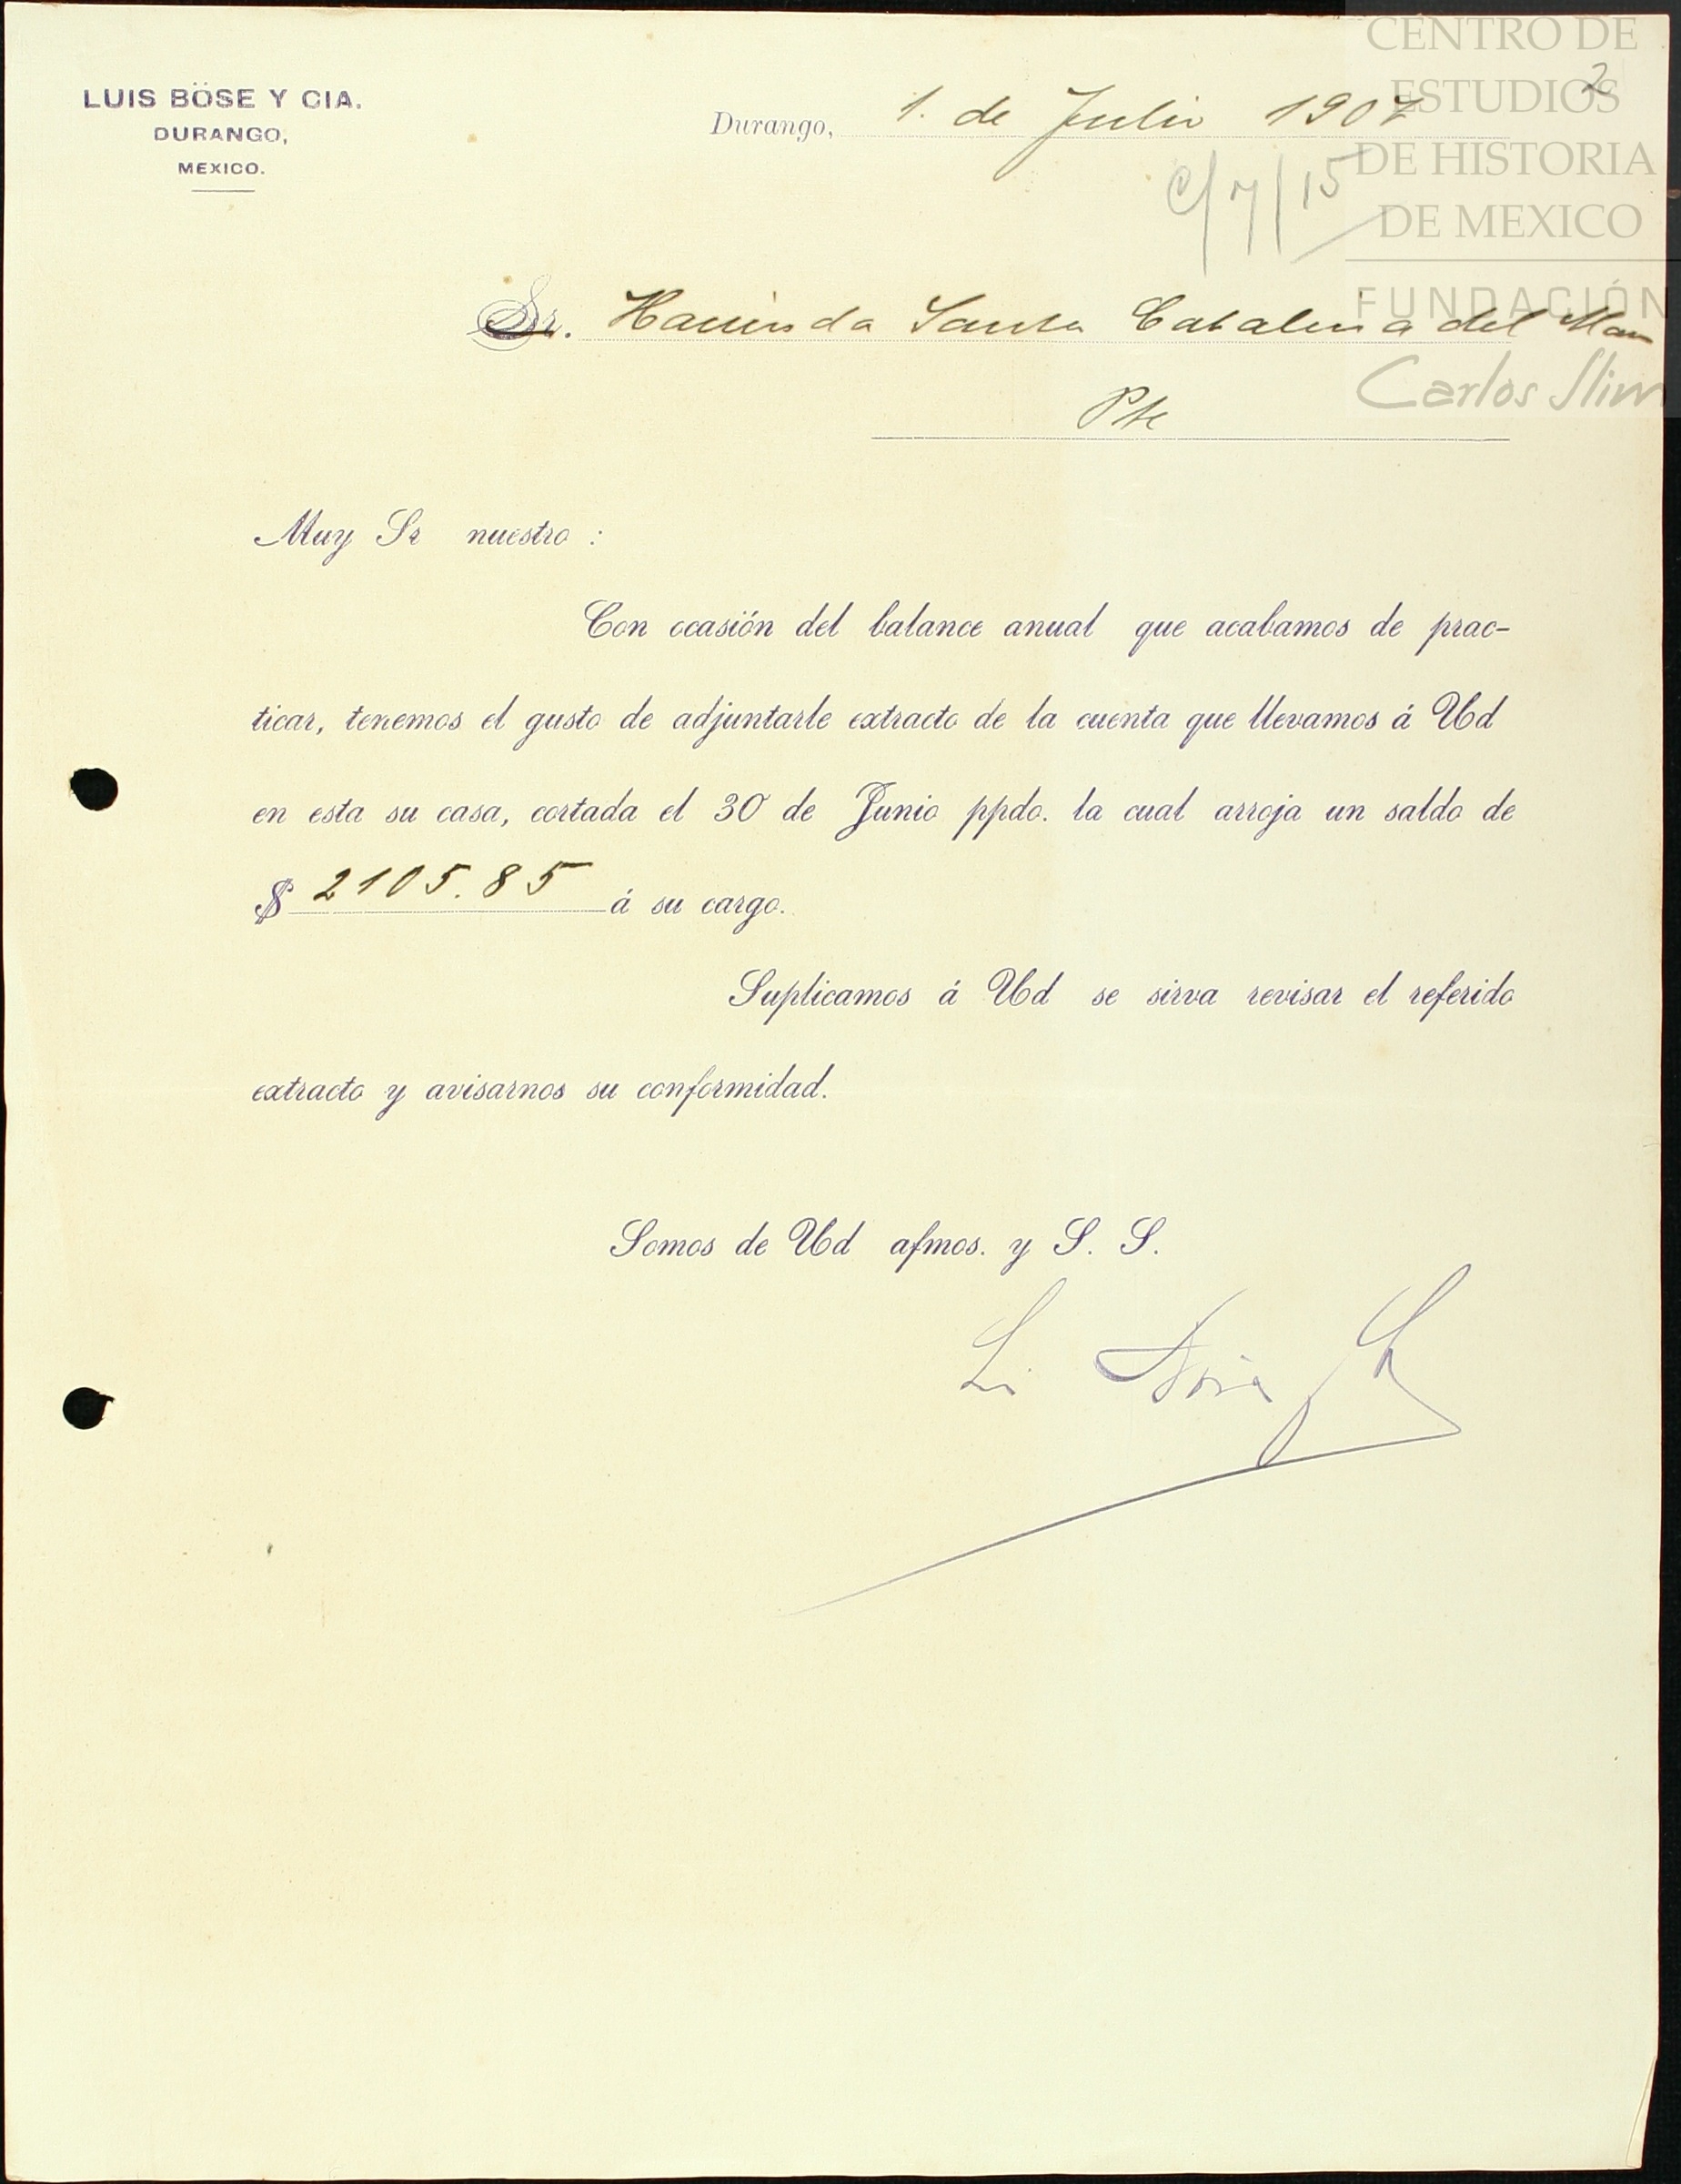 LUIS BÖSE Y CIA.
DURANGO,
MEXICO.
Durango, 1. de Julio 1907
2
C/7/15
Sr. Hacienda Santa Catalina del
Pte
Muy Sr nuestro :
Con ocasión del balance anual que acabamos de prac-
ticar, tenemos el gusto de adjuntarle extracto de la cuenta que llevamos á Ud
en esta su casa, cortada el 30 de Junio ppdo. la cual arroja un saldo de
$ 2105.85 á su cargo.
Suplicamos á Ud se sirva revisar el referido
extracto y avisarnos su conformidad.
Somos de Ud afmos. y S. S.
CENTRO DE
ESTUDIOS
DE HISTORIA
DE MEXICO
FUNDACIÓN
Carlos Slim